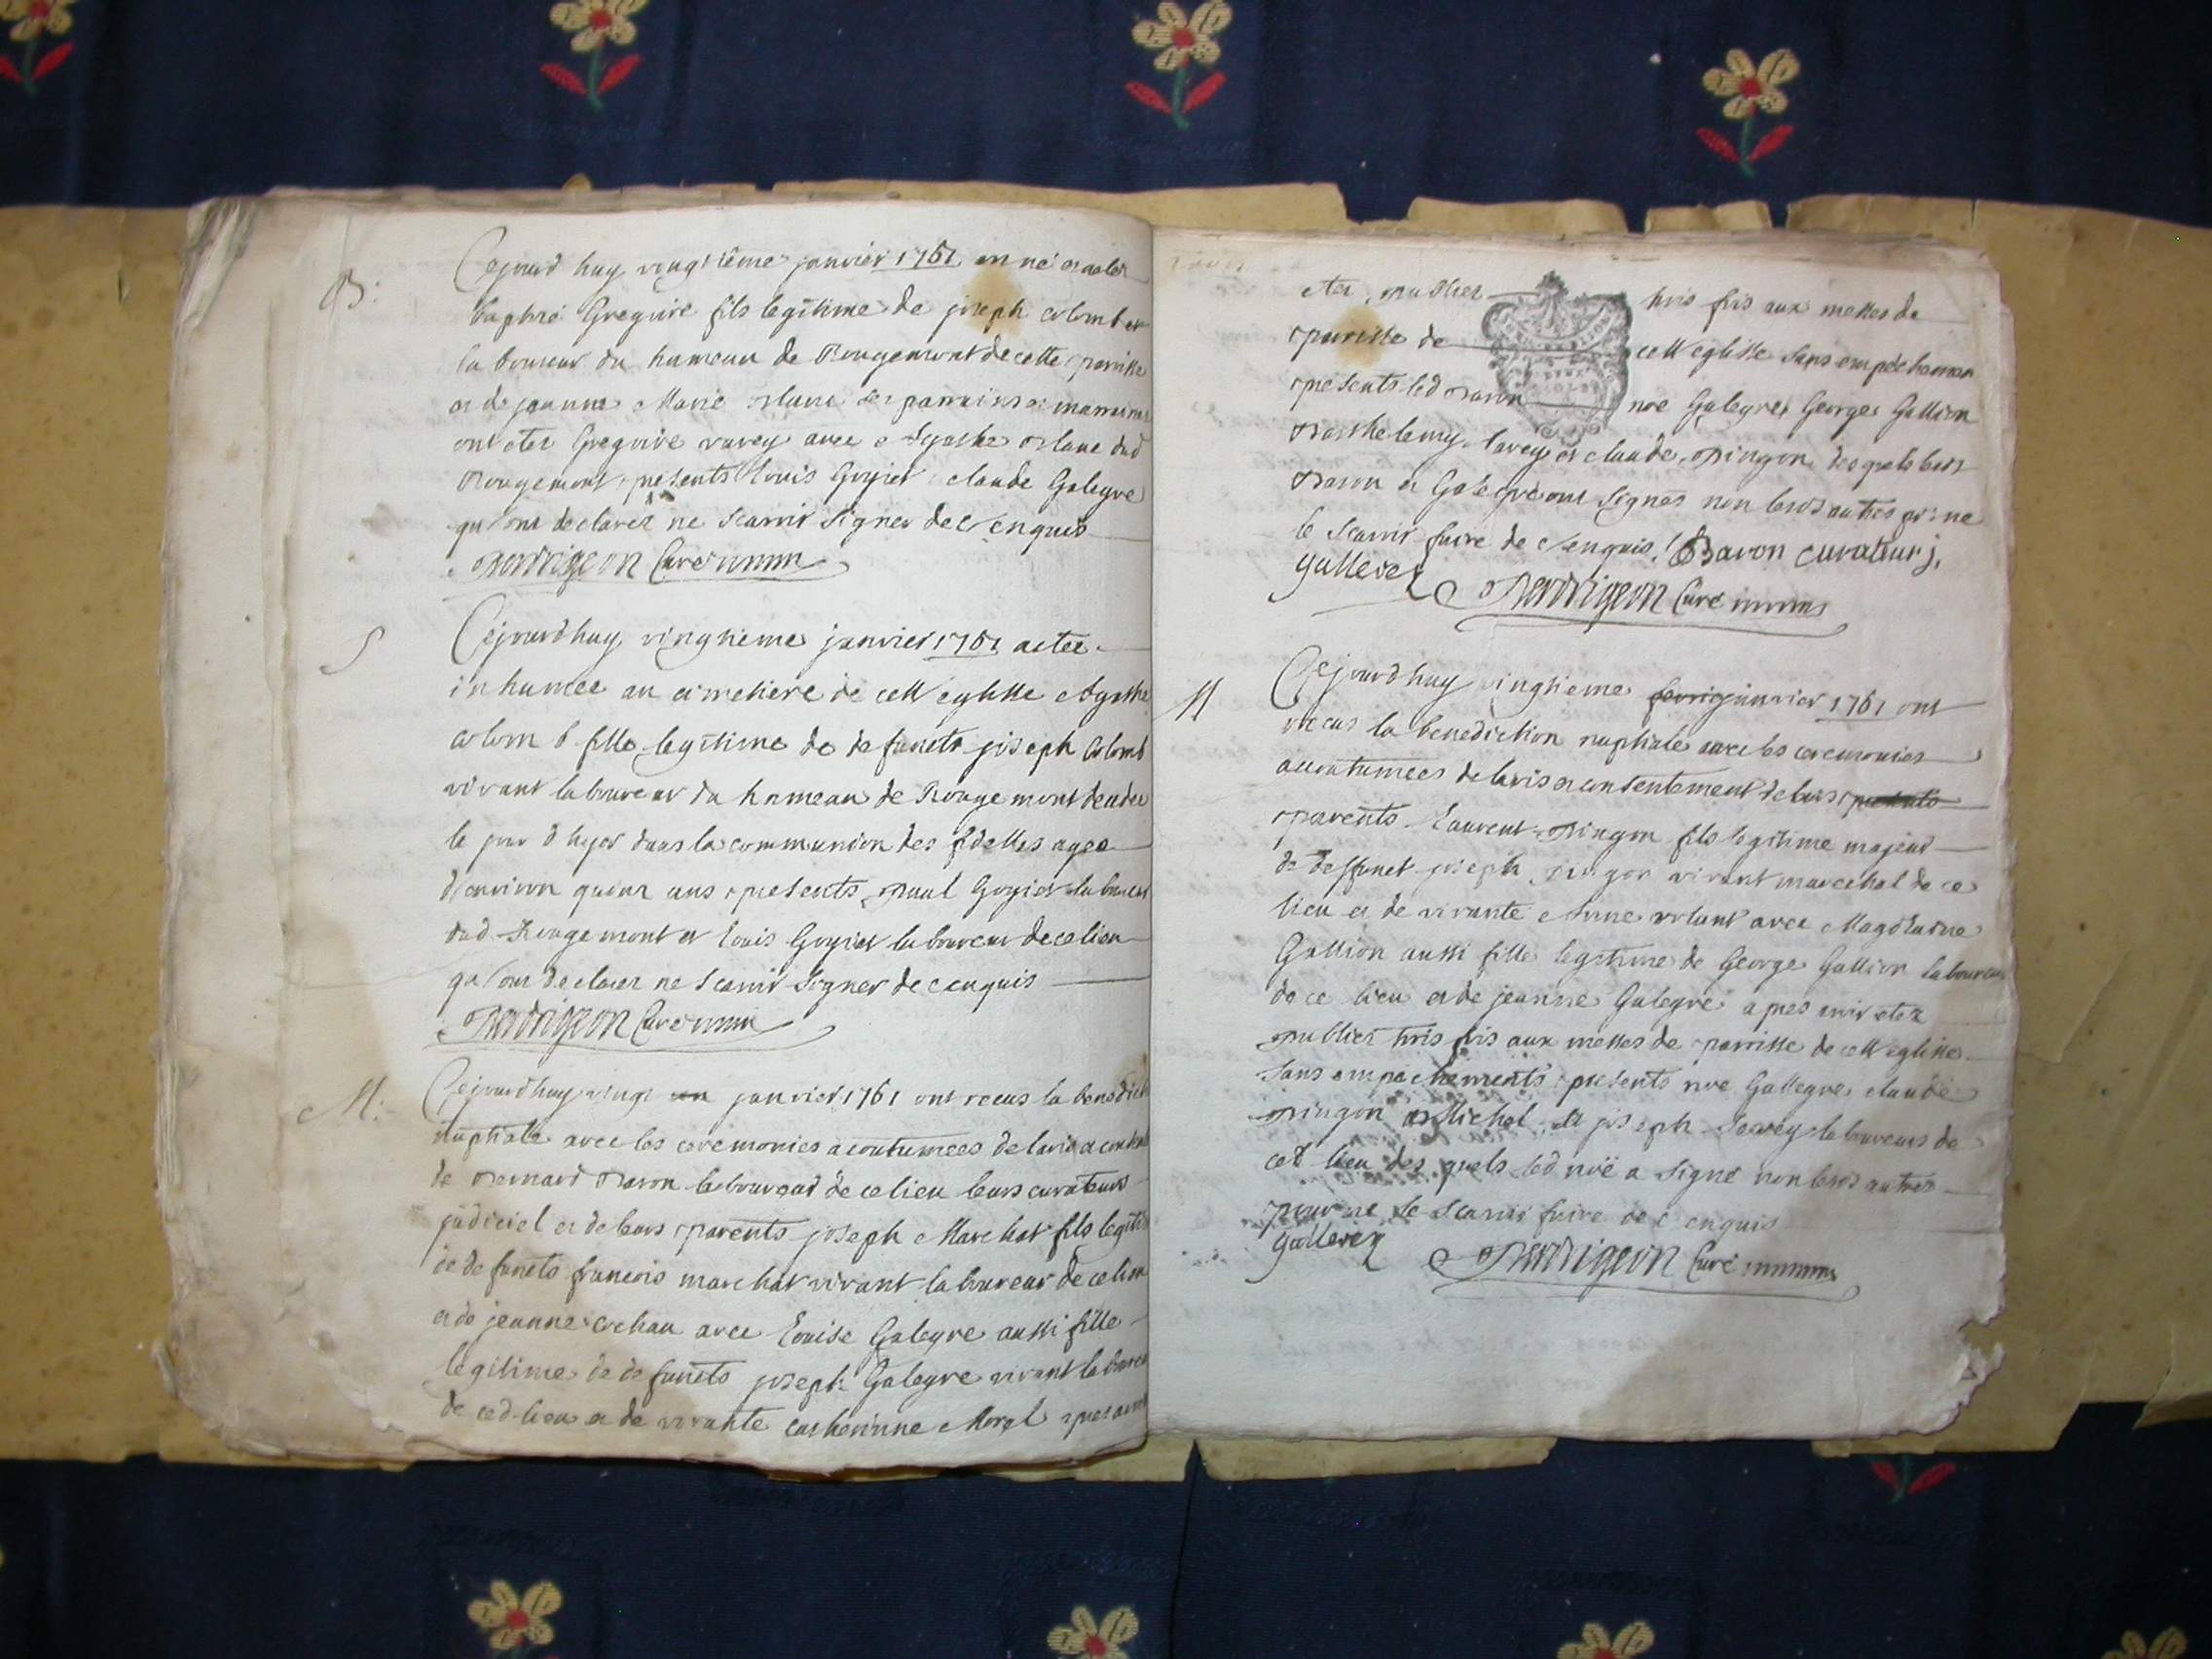 B:
Cejourd huy vingtième janvier 1761 en né et aeter
baptisé Gregoire fils legitime de joseph colomb et
laboureur du hameau de Rougemont de cette parroisse
et de jeanne Marie ses parrains et marraines
ont eter Gregoire varey avec Agathe dud
Rougemont, presents Louis Goyiet claude Galegre
qui ont declarez ne scavoir signer de c enquis
Perrrigeon Curé
S
Cejourdhuy vingtieme janvier 1761 aetee
inhumee au cimetiere de cett eglisse Agathe
colom b fille legitime de defuncts joseph Colomb
vivant laboureur du hameau de Rougemont decedee
le jour d hyer dans la communion des fidelles agee
d'environ quinz ans presents paul Goyiet laboureur
dud Rougemont et Louis Goyiet laboureur de ce lieu
qui ont declarez ne scavoir signer de c enquis
Perrrigeon Curé
M:
Cejourdhuy vingt un janvier 1761 ont receus la benedicti
nuptiale avec les ceremonies acoutumees de lavis et
de Bernard Baron laboureur de ce lieu leurs curateurs
judiciel et de leurs parents joseph Marchat fils legiti
de defuncts francois marchat vivant laboureur de ce lieu
et de jeanne cochau avec Louise Galegre aussi fille
legitime de defuncts joseph Galegre vivant laboureu
de ced lieu et de vivante catherinne Morel apres avoir
eter publiez trois fois aux messes de
parroisse de cett eglisse sans empechemen
presents led Baron noe Galegre, George Gallion
Barthelemy Varey et claude Pingon desquels led
Baron et Galegre ont signes non les autres pr ne
le scavoir faire de c enquis! Baron curateur j.
gallerez Perrrigeon Curé
M
Cejourdhuy vingtieme fevrier janvier 1761 ont
receus la benediction nuptiale avec les ceremonies
acoutumees de lavis et consentement de leurs
parents Laurent Pingon fils legitime majeur
de deffunct joseph pingon vivant marechal de ce
lieu et de vivante Anne volant avec Magdelaine
Gallion aussi fille legitime de George Gallion laboureur
de ce lieu et de jeanne Galegre apres avoir etez
publiez trois fois aux messes de parroisse de cett eglisse
sans empechements presents noe Gallegre, claude
pingon et Michel et joseph Savey laboureurs de
ced lieu des quels led noë a signé non les autres
pour ne le scavoir faire de c enquis
gallerez Perrrigeon Curé